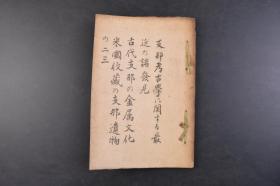 支那考古學に関する最
近の諸發見
古代支那の金属文化
米國收藏の支那遺物
の二三